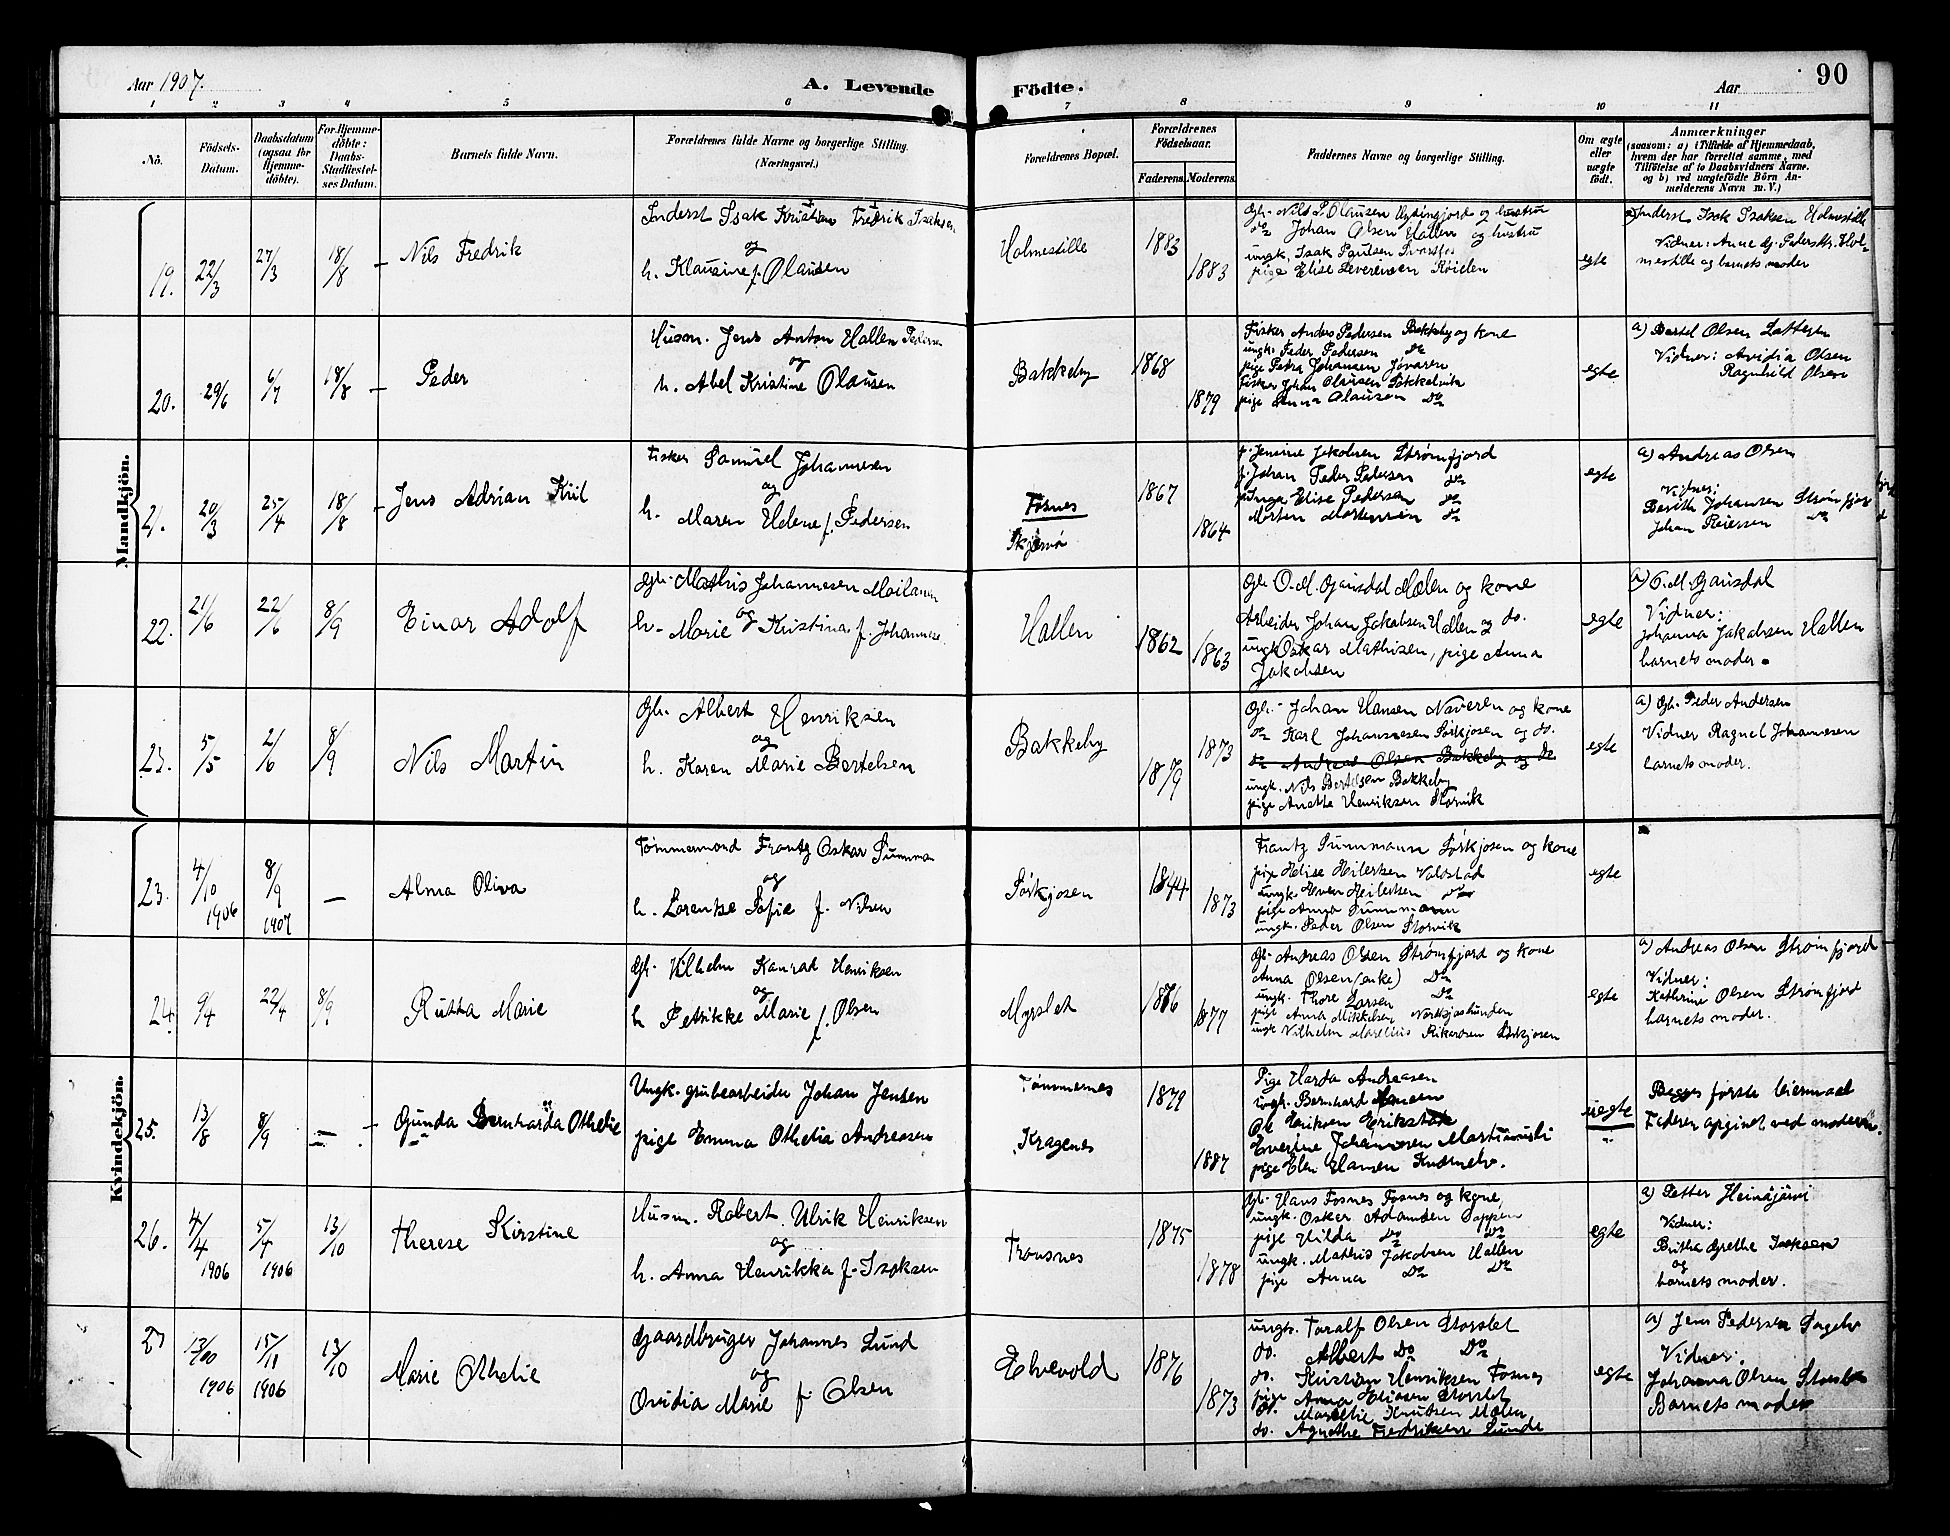 Aar 1907.
A. Levende
Födte.
Aar
90
1 2 3 4 5 6 7 8 9 10 11
No.
Födsels-Datum.
Daabsdatum (ogsaa for Hjemme-döbte).
For Hjemme-döbte: Daabs-Stadfæstel-ses Datum.
Barnets fulde Navn.
Forældrenes fulde Navne og borgerlige Stilling. (Næringsvei.)
Forældrenes Bopæl.
Forældrenes Födselsaar.
Faderens. Moderens.
Faddernes Navne og borgerlige Stilling.
Om ægte eller uægte födt.
Anmærkninger
(saasom: a) i Tilfælde af Hjemmedaab,
hvem der har forrettet samme, med
Tilföielse af to Daabsvidners Navne.
og b) ved uægtefödte Börn An-
melderens Navn m. V.)
Mandkjön.
19. 22/3 27/3 18/8 Nils Fredrik
Inderst Isak Kristian Fredrik Isaksen
og
h. Klausine f. Olausen
Holmestille 1883 1883
Gbr. Nils P. Olausen og hustru
do Johan Olsen Hallen og hustru
ungk. Isak Paulsen
pige Elise Severinsen
egte
a) Inderst Isak Isaksen Holmestille
Vidner: Anne Pedersdtr. Hol-
mestille og barnets moder
20. 29/6 6/7 18/8 Peder
Husm. Jens Anton Hallen Pedersen
og
h. Abel Kristine Olausen
Bakkeby 1868 1879
Fisker Anders Pedersen Bakkeby og kone
ungk. Peder Pedersen do
pige Petra Johansen
Fisker Johan Olausen
pige Anna Olausen do
egte
a) Bertel Olsen
Vidner: Avidia Olsen
Ragnhild Olsen
21. 20/3 25/4 18/8 Jens Adrian Kiil
Fisker Samuel Johannesen
og
h. Maren Helene f. Pedersen
Fosnes
Skjervø
1867 1864
p. Jensine Jakobsen Strømfjord
f. Johan Peder Pedersen do
p. Inga Elise Pedersen do
Morten Mortensen do
egte
a) Andreas Olsen
Vidner:
Berith Johansen Strømfjord
Johan Reiersen do
22. 21/6 22/6 8/9 Einar Adolf
Gbr. Mathis Johannesen
og
h. Marie Kristina f. Johannese
Hallen 1862 1863
Gbr. O. M. Gjæusdal Mælen og kone
Arbeider Johan Jakobsen Hallen og do.
ungk. Oskar Mathisen, pige Anna
Jakobsen
egte
a) O. M. Gausdal
Vidner:
Johanna Jakobsen Hallen
barnets moder.
23. 5/5 2/6 8/9 Nils Martin
Gbr. Albert Henriksen
og
h. Karen Marie Bertelsen
Bakkeby 1879 1873
Gbr. Johan Hansen Naveren og kone
do Karl Johannesen Sørkjosen og do.
do Andreas Olsen Bakkeby og do
ungk. Nils Bertelsen Bakkeby
pige Anette Henriksen Storvik
egte
a) Gbr. Peder Andersen
Vidner Ragnel Johannesen
barnets moder.
Kvindekjön.
23. 4/10 1906 8/9 1907 — Alma Oliva
Tømmermand Frantz Oskar Summan
og
h. Lorentze Sofie f. Nilsen
Sørkjosen 1844 1873
Frantz Summann Sørkjosen og kone
pige Helise Heilertsen
ungk. Even Heilertsen do
pige Anna Summann
ungk. Peder Olsen Storvik
egte
24. 9/4 22/4 8/9 Rutta Marie
Gbr. Vilhelm Konrad Henriksen
og
h Petrikke Marie f. Olsen
Myrslet 1876 1877
Gbr. Andreas Olsen Strømfjord og kone
Anna Olsen (enke) do
ungk. Thore Larsen do
pige Anna Mikkelsen Nordkjosbunden
ungk. Vilhelm Marelius Rikardsen Sørkjosen
egte
a) Andreas Olsen Strømfjord
Vidner:
Kathrine Olsen Strømfjord
barnets moder.
25. 13/8 8/9 — Gunda Bernharda Othelie
Ungk. grubearbeider Johan Jensen
pige Emma Othelia Andreasen
Tømmernes
Kragenes
1879 1887
Pige Harda Andreasen
ungk. Bernhard Hansen
Ole Eriksen
Everine Johannesen
pige Elen Hansen
uegte
Begges første leiermaal
Faderen opgivet ved moderen.
26. 4/4 1906 5/4 1906 13/10 Therese Kirstine
Husm. Robert Ulrik Henriksen
og
h. Anna Henrikka f. Isaksen
Fransnes 1875 1878
Gbr. Hans Fosnes Fosnes og kone
ungk. Oskar Adamsen Soppen
pige Hilda do do
ungk. Mathis Jakobsen Hallen
pige Anna do do
egte
a) Petter Heinäjärvi
Vidner:
Britha Grethe Isaksen
og
barnets moder.
27 13/10 1906 15/11 1906 13/10 Marie Othelie
Gaardbruger Johannes Lund
og
Ovidia Marie f. Olsen
Elvevold 1876 1873
ungk. Toralf Olsen Storslet
do. Albert do do
do. Kristian Henriksen Fosnes
pige Anna Eliasen Storslet
do. Maselie Knutsen Mælen
do. Agnethe Fredriksen Lunde
egte
a) Jens Pedersen
Vidner:
Johanna Olsen Storslet
Barnets moder